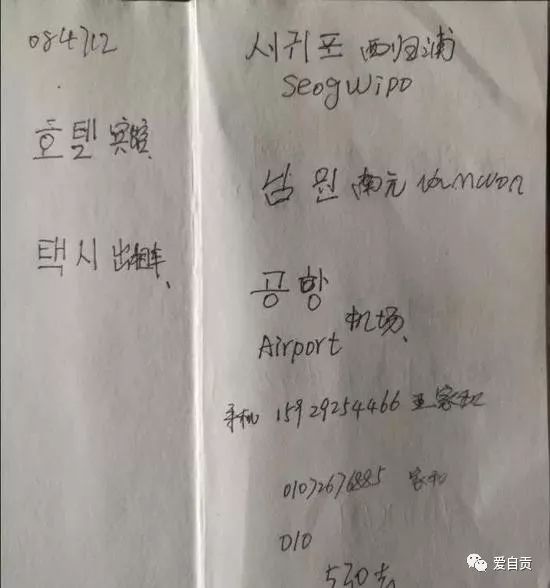 084712
호텔 宾馆
택시 出租车
서귀포 西归浦
Seogwipo
남원 南元 Namwon
공항
Airport 机场
手机 15929254466 家和
01072676885 家和
010
爱自贡